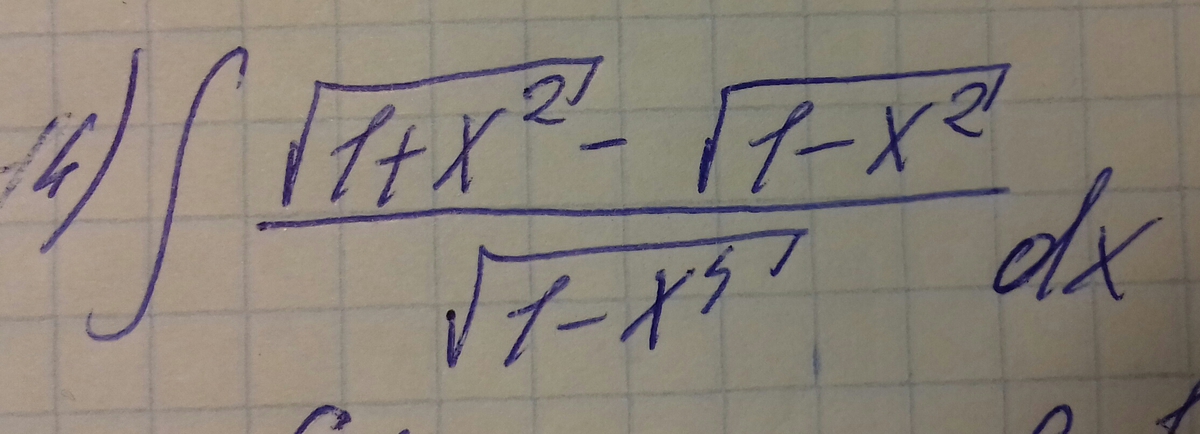 14) ∫ (√(1+x²) - √(1-x²)) / √(1-x⁴) dx